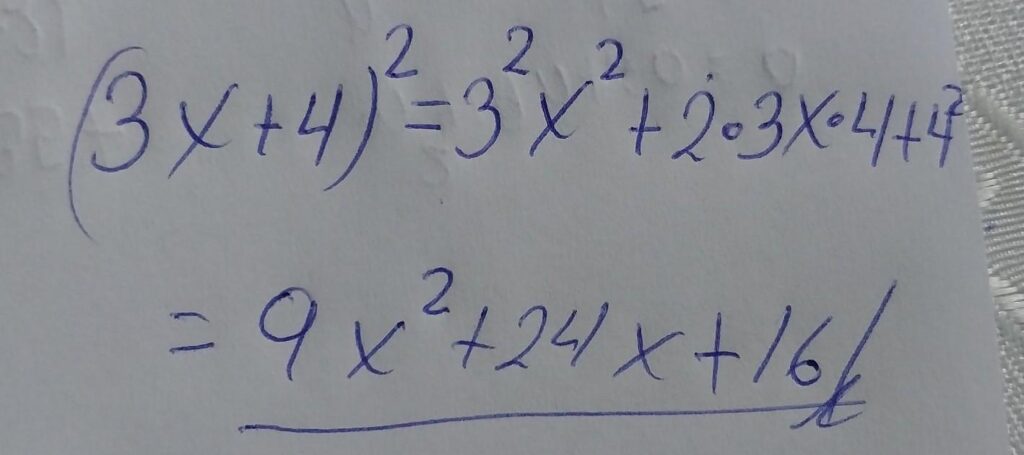 (3x+4)²=3²x²+2·3x·4+4²
=9x²+24x+16